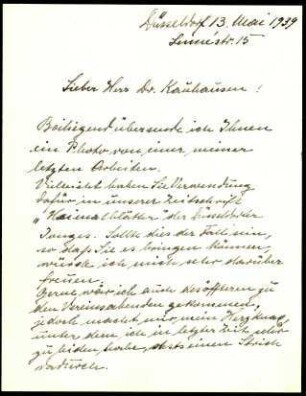 Düsseldorf 13. Mai 1939
Lennéstr. 15
Lieber Herr Dr. Kauhausen!
Beiliegend übersende ich Ihnen
ein Photo von einer meiner
letzten Arbeiten.
Vielleicht haben Sie Verwendung
dafür, in unserer Zeitschrift
„Heimatblätter" der Düsseldorfer
Jonges. Sollte dies der Fall sein,
so daß Sie es bringen können,
würde ich mich sehr darüber
freuen.
Gerne wär ich auch des öfteren zu
den Vereinsabenden gekommen,
jedoch macht mir mein
unter dem ich in letzter Zeit sehr
zu leiden habe, stets einen Strich
dadurch.